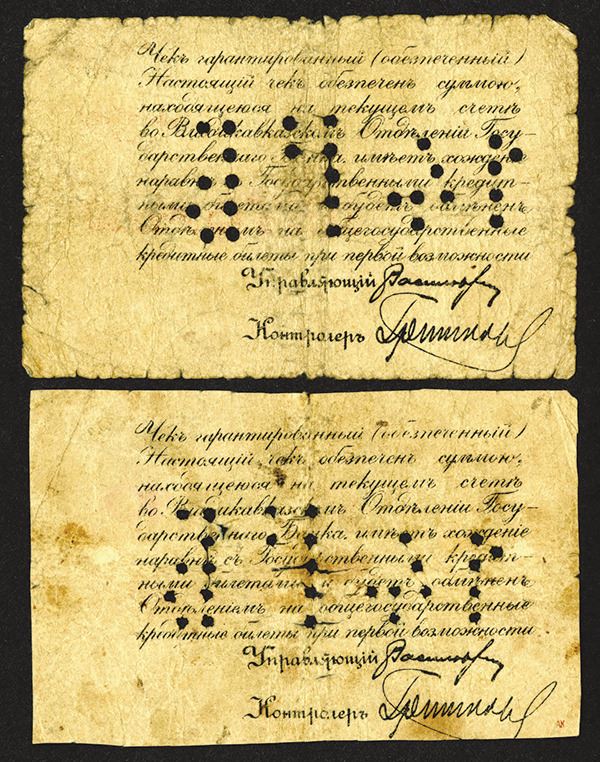 Чекъ гарантированный (обезпеченный)
Настоящій чекъ обезпеченъ суммою,
находящеюся на текущемъ счетѣ
во Владикавказскомъ Отдѣленіи Госу-
дарственнаго Банка, имѣетъ хожденіе
наравнѣ съ Государственными кредит-
ными билетами и будетъ обмѣненъ
Отдѣленіемъ на общегосударственные
кредитные билеты при первой возможности
Управляющій
Контролеръ
Чекъ гарантированный (обезпеченный)
Настоящій чекъ обезпеченъ суммою,
находящеюся на текущемъ счетѣ
во Владикавказскомъ Отдѣленіи Госу-
дарственнаго Банка, имѣетъ хожденіе
наравнѣ съ Государственными кредит-
ными билетами и будетъ обмѣненъ
Отдѣленіемъ на общегосударственные
кредитные билеты при первой возможности
Управляющій
Контролеръ